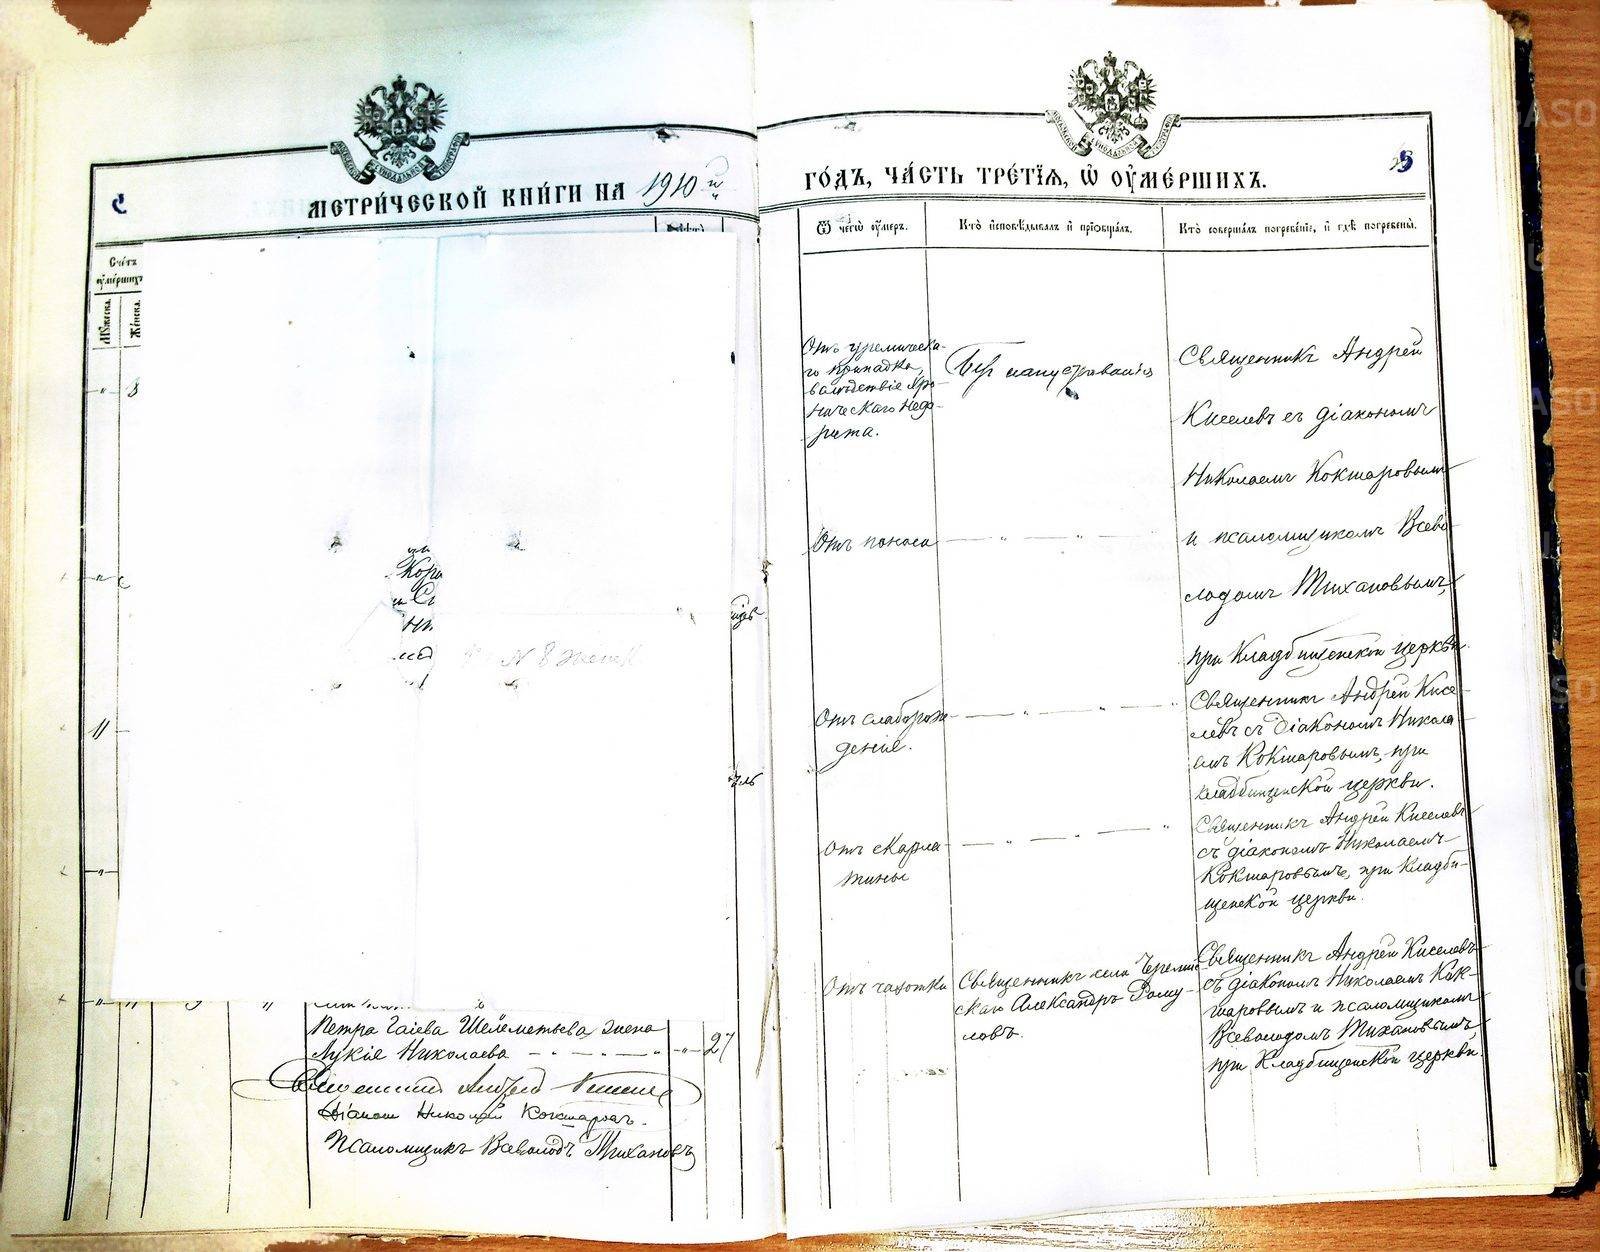 МЕТРИ́ЧЕСКОЙ КНИ́ГИ НА 1910 й
Сче́тъ
ѹме́ршихъ
Мѹ́жеска.
Же́нска.
8
11
Петра Гаіева Шелеметьева, жена
Лукія Николаева 27
Священникъ Андрей
Діаконъ Николай Кокшаровъ.
Псаломщикъ Всеволодъ Тихановъ
№ 8
ГО́ДЪ, ЧА́СТЬ ТРЕ́ТЇѦ, Ѿ ОУ҆МЕ́РШИХЪ.
Ѿ чегѡ̀ ѹ҆́меръ.
Кто̀ и҆сповѣ́дывалъ и҆ прїѡбща́лъ.
Кто̀ соверша́лъ погребе́нїе, и҆ гдѣ̀ погребены̀.
Отъ уремическа-
го припадка,
вслѣдствіе хро-
ническаго неф-
рита.
Безъ напутствованія
Священникъ Андрей
Киселевъ съ діакономъ
Николаемъ Кокшаровымъ
и псаломщикомъ Всево-
лодомъ Тихановымъ,
при Кладбищенской церкви.
Отъ поноса
Отъ слаборож-
денія.
Священникъ Андрей Кисе-
левъ съ діакономъ Никола-
емъ Кокшаровымъ, при
кладбищенской церкви.
Отъ скарла-
тины
Священникъ Андрей Киселевъ
съ діакономъ Николаемъ
Кокшаровымъ, при Кладби-
щенской церкви.
Отъ чахотки
Священникъ села Черемис-
скаго Александръ
Священникъ Андрей Киселевъ
съ діакономъ Николаемъ Кок-
шаровымъ и псаломщикомъ
Всеволодомъ Тихановымъ,
при Кладбищенской церкви.